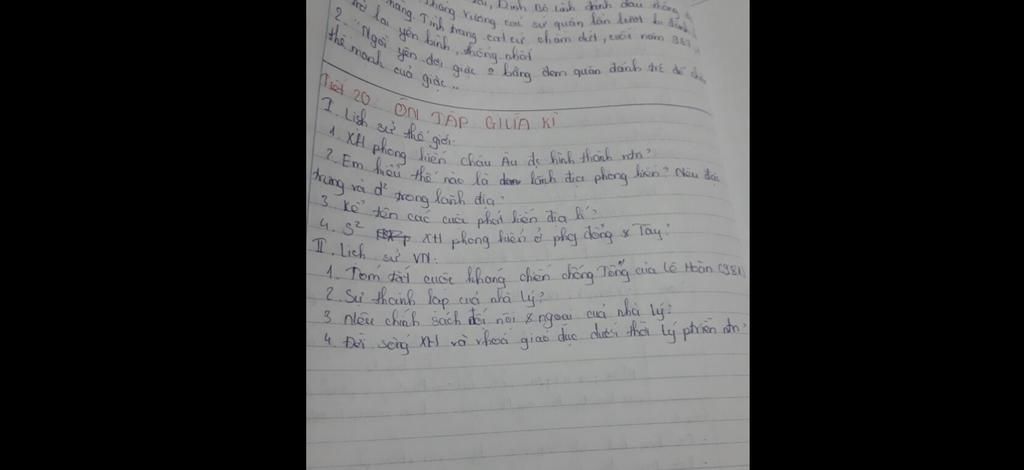 Đinh Bộ Lĩnh đánh đâu thắng
Tình trạng cát cứ chấm dứt, cuối năm 967,
trở lại yên bình, thống nhất
2. "Ngồi yên đợi giặc o bằng đem quân đánh trc để chặn
thế mạnh của giặc..
Tiết 20 ÔN TẬP GIỮA KÌ
I. Lịch sử thế giới.
1. XH phong kiến châu Âu đc hình thành ntn?
2. Em hiểu thế nào là lãnh địa phong kiến? Nêu đặc
trưng và đ² trong lãnh địa?
3. Kể tên các cuộc phát kiến địa lí?
4. S² XH phong kiến ở phg đông & Tây?
II. Lịch sử VN.
1. Tóm tắt cuộc kháng chiến chống Tống của Lê Hoàn (981)
2. Sự thành lập của nhà Lý?
3. Nêu chính sách đối nội & ngoại của nhà Lý?
4. Đời sống XH và khoá giáo dục dưới thời Lý ntn?